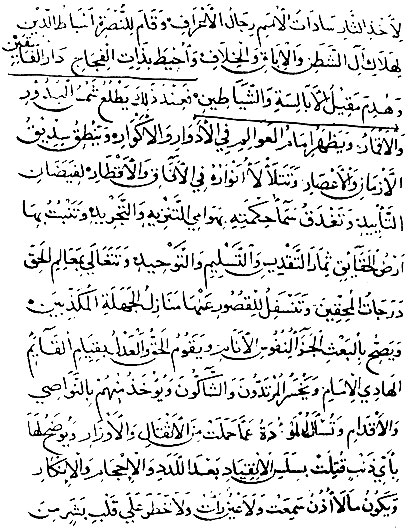 لأخذ الثار سادات الأمم رجال الأعراف وقام للنصرة أسباط الدين
بهلاك آل الشطن والإباة والخلاف وأحيط بذات الفجاج دار الفاسقين
وهدم مقيل الأبالسة والشياطين فعند ذلك يطلع شمس البدور
والأقمار ويظهر إمام العوالم في الأدوار والأكوار وينطق سديق
الأزمان والأعصار وتتلألأ أنواره في الآفاق والأقطار لفيضان
التأييد وتغدق سماء حكمته بهوامي التنزيه والتجريد وتنبت بها
أرض الحقايق ثمار التقديس والتسليم والتوحيد وتتعالى بمعالم الحق
درجات المحقين وتتسفل للقصور عنها منازل الجهلة المكذبين
ويصح بالبعث لجزاء النفوس الأنام ويقوم الحق والعدل بقيام القايم
الهادي الإمام ويخسر المرتدون والشاكون ويؤخذ منهم بالنواصي
والأقدام وتسأل المؤودة عما حملت من الأثقال والأوزار ويوضح لها
بأي ذنب قتلت بسلس الانقياد بعد اللدد والإحجار والإنكار
ويكون ما لا أذن سمعت ولا عين رأت ولا خطر على قلب بشر من